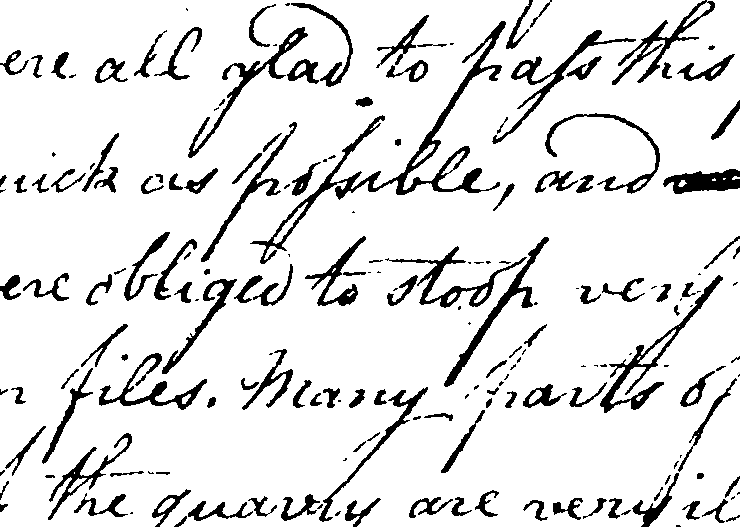 ere all glad to paſs this
uick as poſsible, and
ere obliged to stoop very
n files. Many parts of
the quarry are very il